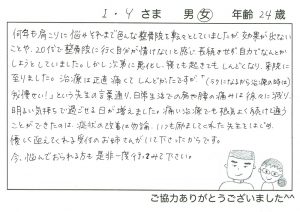 I・Y さま 男 女 年齢 24 歳
何年も肩こりに悩みそれまで色んな整骨院を転々としていましたが効果が出ない
ことや、20代で整骨院に行く自分が情けないと感じ長続きせず自力でなんとか
しようとしていました。しかし次第に悪化し、寝ても起きてもしんどくなり、来院に
至りました。治療は正直痛くてしんどかったですが「(ラクになるから治療の時は)
我慢せい!」という先生の言葉通り、日常生活での肩や腰の痛みは徐々に減り
明るい気持ちで過ごせる日が増えました。痛い治療でも根気よく続けて通う
ことができたのは、症状の改善は勿論、いつも励ましてくれた先生をはじめ、
優しく迎えてくれる受付のお姉さんがいて下さったからです。
今、悩んでおられる方も是非一度お試み下さい。
ご協力ありがとうございました^^